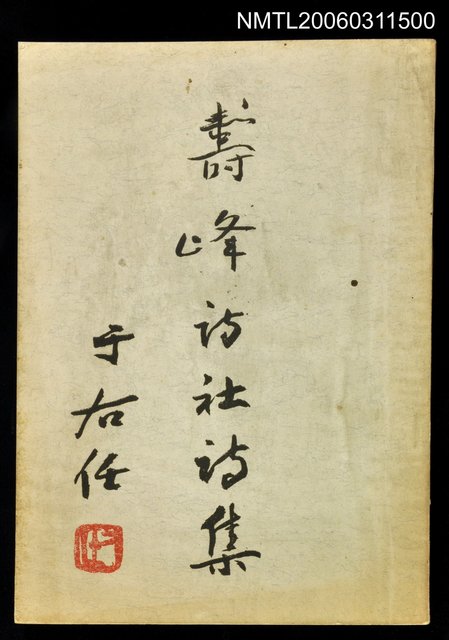 NMTL20060311500
壽峰詩社詩集
于右任